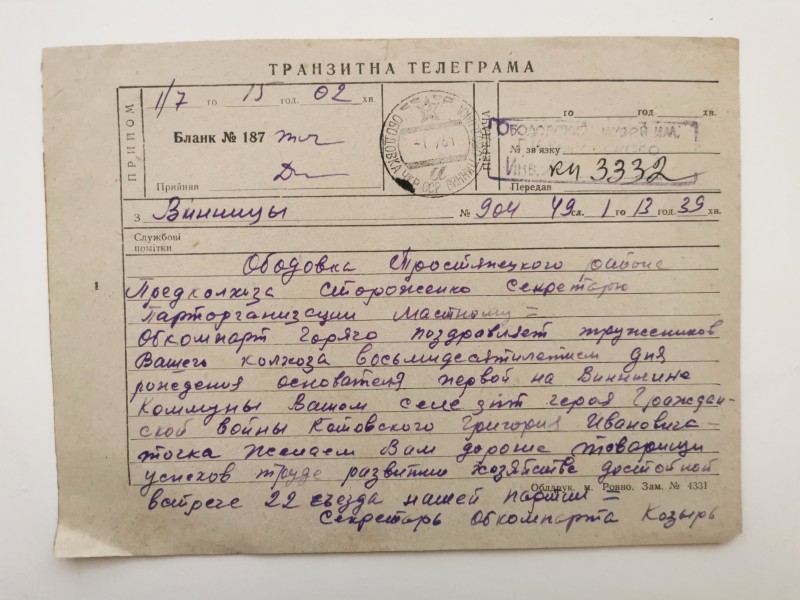 ТРАНЗИТНА ТЕЛЕГРАМА
ПРИЙОМ
1/7 го 15 год. 02 хв.
Бланк № 187
Прийняв
ОБОДОВКА УКР. ССР ВИННИЦ
-1 7 61
ПЕРЕДАЧА
го год хв.
ОБОДОВСКИЙ МУЗЕЙ ИМ.
№ зв'язку
ИНВ. КП 3332
Передав
З Винницы № 904 49 сл. 1 го 13 год. 39 хв.
Службові
помітки
Ободовка Тростянецкого района
Предколхоза Стороженко Секретарю
Парторганизации Мастному =
Обкомпарт горячо поздравляет тружеников
Вашего колхоза восьмидесятилетием дня
рождения основателя первой на Виннични
Коммуны Вашом селе зпт героя Граждан-
ской войны Котовского Григория Ивановича =
точка Желаем Вам дорогие товарищи
успехов труде развитии хозяйства достойной
Облдрук. м. Ровно. Зам. № 4331
встрече 22 съезда нашей партии =
Секретарь Обкомпарта Козырь